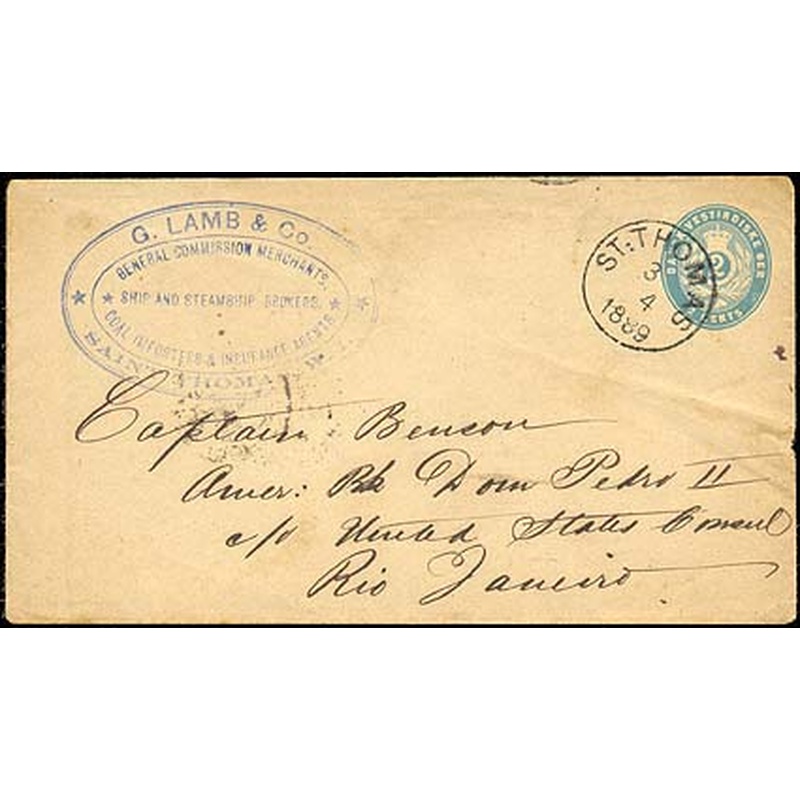 G. LAMB & Co.
GENERAL COMMISSION MERCHANTS,
SHIP AND STEAMSHIP BROKERS.
COAL IMPORTERS & INSURANCE AGENTS
SAINT THOMAS W
ST: THOMAS
3
4
1889
VESTINDISKE
2
CENTS
Captain Benson
Amer: Bk Dom Pedro II
c/o United States Consul
Rio Janeiro